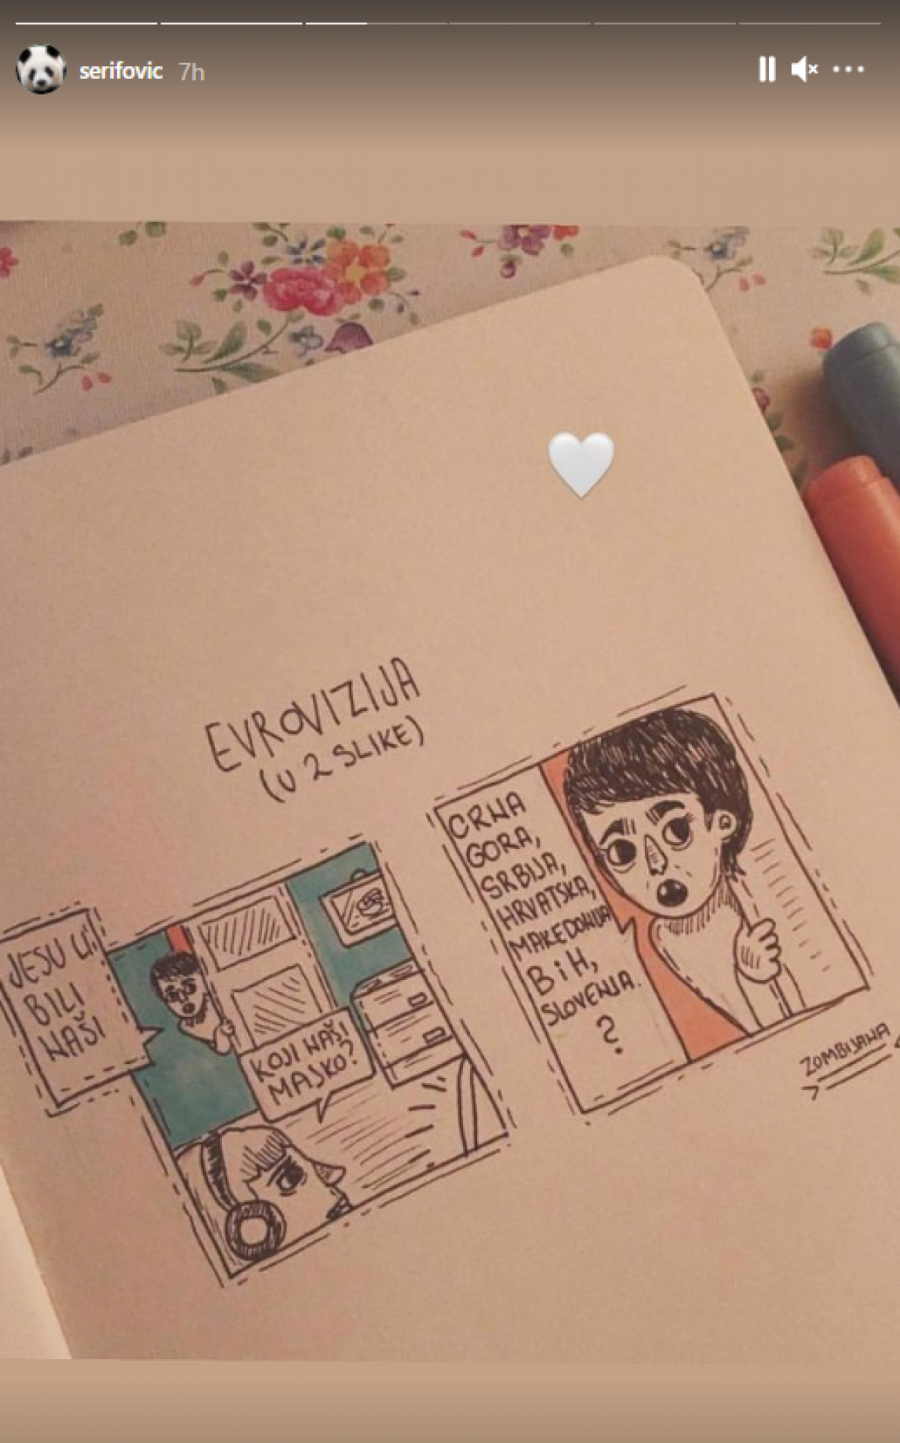 serifovic 7h
EVROVIZIJA
(U 2 SLIKE)
JESU LI
BILI
NAŠI
KOJI NAŠI
MAJKO?
CRNA
GORA,
SRBIJA,
HRVATSKA,
MAKEDONIJA
BiH,
SLOVENIJA.
?
ZOMBIJANA